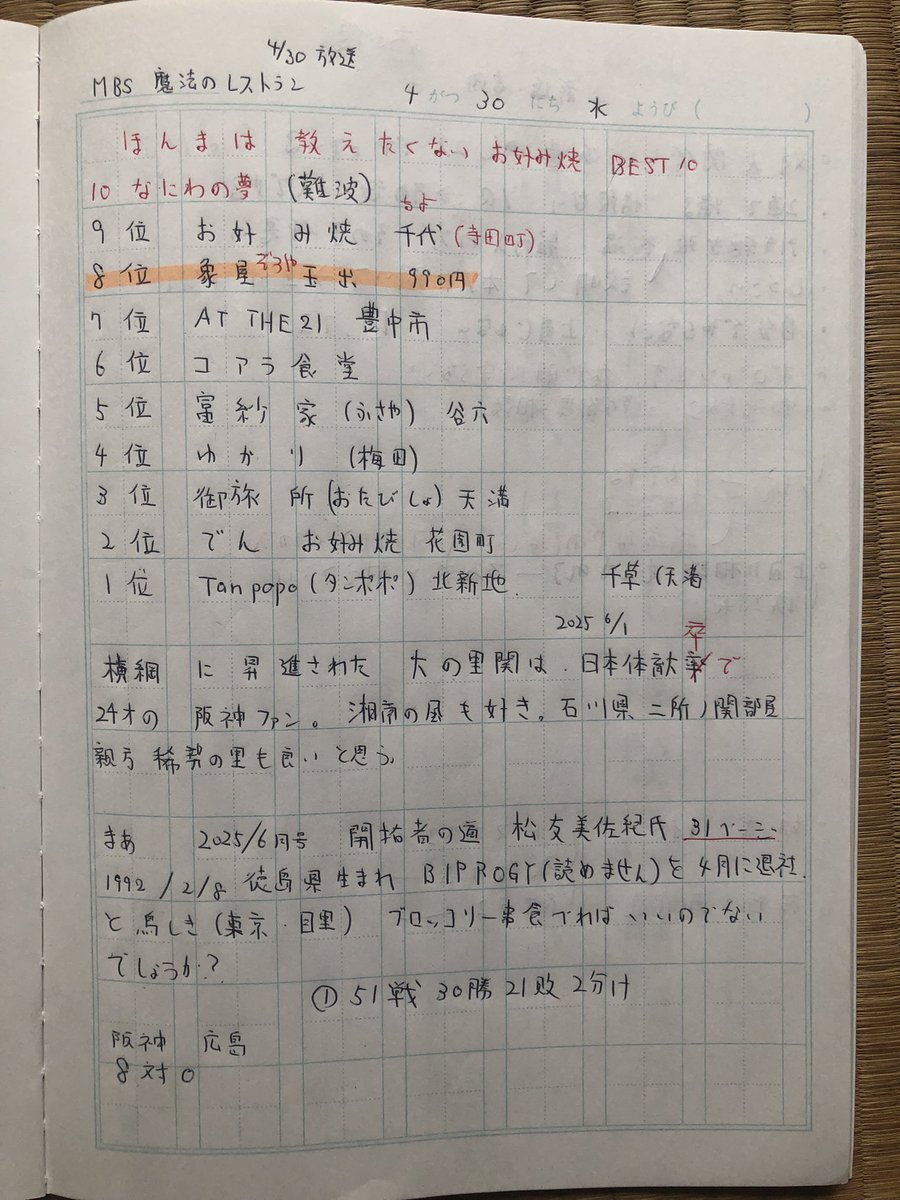 4/30 放送
MBS 魔法のレストラン
4 がつ 30 にち 水 ようび ( )
ほんまは 教えたくない お好み焼 BEST10
10 なにわの夢 (難波)
9位 お好み焼 千代 ちよ (寺田町)
8位 象屋 ぞうや 玉出 990円
7位 AT THE21 豊中市
6位 コアラ食堂
5位 富紗家 (ふさや) 谷六
4位 ゆかり (梅田)
3位 御旅所 (おたびしょ) 天満
2位 でん お好み焼 花園町
1位 Tanpopo (タンポポ) 北新地. 千草 (天満
2025 6/1
横綱に昇進された 大の里関は. 日本体献大卒で
24才の 阪神ファン。湘南の風も好き。石川県 二所ノ関部屋
親方 稀勢の里も良いと思う。
まあ 2025/6月号 開拓者の道 松友美佐紀氏 31ページ
1992/2/8 徳島県生まれ BIPROGY (読めません) を4月に退社.
と鳥しき (東京・目黒) ブロッコリー串食べればいいのでない
でしょうか?
① 51戦 30勝 21敗 2分け
阪神 広島
8対0